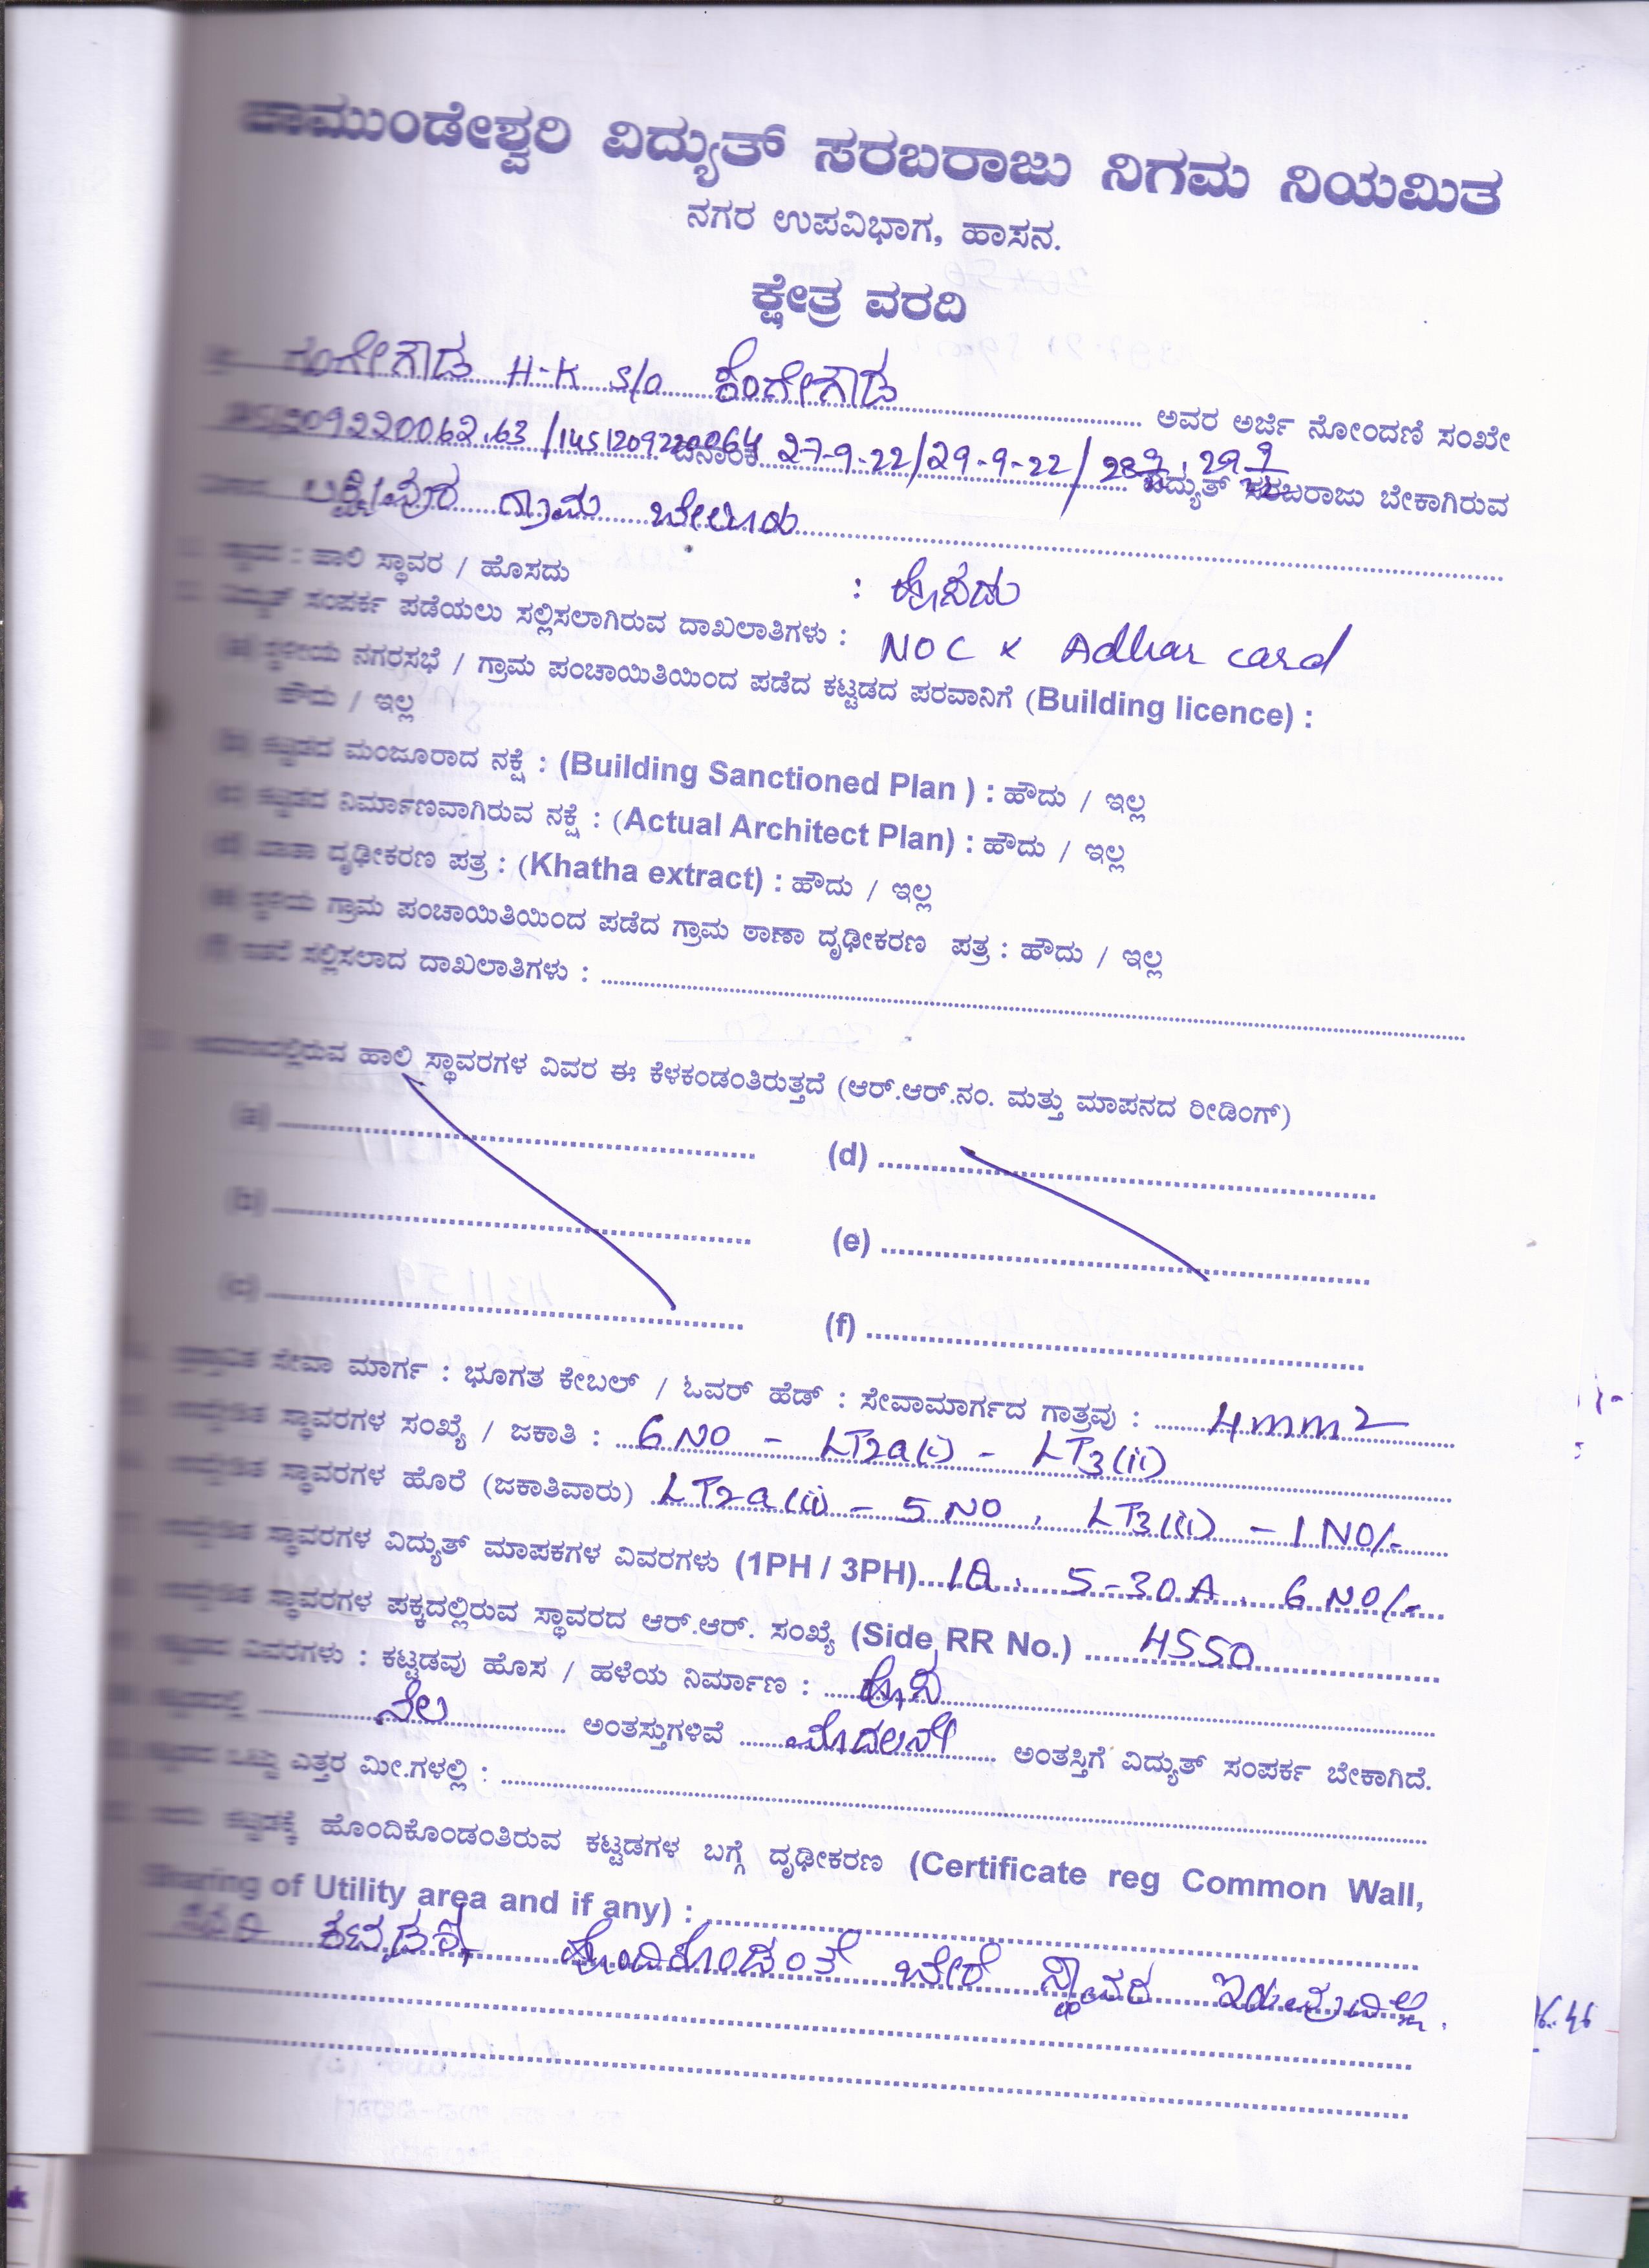 ಚಾಮುಂಡೇಶ್ವರಿ ವಿದ್ಯುತ್ ಸರಬರಾಜು ನಿಗಮ ನಿಯಮಿತ
ನಗರ ಉಪವಿಭಾಗ, ಹಾಸನ.
ಕ್ಷೇತ್ರ ವರದಿ
H-K S/o ಕೆಂಗೇಗೌಡ ಅವರ ಅರ್ಜಿ ನೋಂದಣಿ ಸಂಖೇ
209220062.63 / ದಿನಾಂಕ 27-9-22/29-9-22/ ವಿದ್ಯುತ್ ಸರಬರಾಜು ಬೇಕಾಗಿರುವ
ಗ್ರಾಮ ಬೇಲೂರು
ಸ್ಥಾವರ : ಹಾಲಿ ಸ್ಥಾವರ / ಹೊಸದು : ಹೊಸದು
ವಿದ್ಯುತ್ ಸಂಪರ್ಕ ಪಡೆಯಲು ಸಲ್ಲಿಸಲಾಗಿರುವ ದಾಖಲಾತಿಗಳು : NOC & Adhar card
(a) ಸ್ಥಳೀಯ ನಗರಸಭೆ / ಗ್ರಾಮ ಪಂಚಾಯಿತಿಯಿಂದ ಪಡೆದ ಕಟ್ಟಡದ ಪರವಾನಿಗೆ (Building licence) :
ಹೌದು / ಇಲ್ಲ
(b) ಕಟ್ಟಡದ ಮಂಜೂರಾದ ನಕ್ಷೆ : (Building Sanctioned Plan ) : ಹೌದು / ಇಲ್ಲ
(c) ಕಟ್ಟಡದ ನಿರ್ಮಾಣವಾಗಿರುವ ನಕ್ಷೆ : (Actual Architect Plan) : ಹೌದು / ಇಲ್ಲ
(d) ಖಾತಾ ದೃಢೀಕರಣ ಪತ್ರ : (Khatha extract) : ಹೌದು / ಇಲ್ಲ
(e) ಸ್ಥಳೀಯ ಗ್ರಾಮ ಪಂಚಾಯಿತಿಯಿಂದ ಪಡೆದ ಗ್ರಾಮ ಠಾಣಾ ದೃಢೀಕರಣ ಪತ್ರ : ಹೌದು / ಇಲ್ಲ
(f) ಇತರೆ ಸಲ್ಲಿಸಲಾದ ದಾಖಲಾತಿಗಳು :
ಹಾಲಿ ಸ್ಥಾವರಗಳ ವಿವರ ಈ ಕೆಳಕಂಡಂತಿರುತ್ತದೆ (ಆರ್.ಆರ್.ನಂ. ಮತ್ತು ಮಾಪನದ ರೀಡಿಂಗ್)
(a) (d)
(b) (e)
(c) (f)
ಸೇವಾ ಮಾರ್ಗ : ಭೂಗತ ಕೇಬಲ್ / ಓವರ್ ಹೆಡ್ : ಸೇವಾಮಾರ್ಗದ ಗಾತ್ರವು : 4mm2
ಸ್ಥಾವರಗಳ ಸಂಖ್ಯೆ / ಜಕಾತಿ : 6 NO - LT2a(i) - LT3(ii)
ಸ್ಥಾವರಗಳ ಹೊರೆ (ಜಕಾತಿವಾರು) LT2a(ii) - 5 NO, LT3(ii) - 1 NO/-
ಸ್ಥಾವರಗಳ ವಿದ್ಯುತ್ ಮಾಪಕಗಳ ವಿವರಗಳು (1PH / 3PH) 5-30A, 6 NO/-
ಸ್ಥಾವರಗಳ ಪಕ್ಕದಲ್ಲಿರುವ ಸ್ಥಾವರದ ಆರ್.ಆರ್. ಸಂಖ್ಯೆ (Side RR No.) 4550
ಕಟ್ಟಡದ ವಿವರಗಳು : ಕಟ್ಟಡವು ಹೊಸ / ಹಳೆಯ ನಿರ್ಮಾಣ : ಹೊಸ
ಕಟ್ಟಡದಲ್ಲಿ ನೆಲ ಅಂತಸ್ತುಗಳಿವೆ ಮೊದಲನೇ ಅಂತಸ್ತಿಗೆ ವಿದ್ಯುತ್ ಸಂಪರ್ಕ ಬೇಕಾಗಿದೆ.
ಕಟ್ಟಡದ ಒಟ್ಟು ಎತ್ತರ ಮೀ.ಗಳಲ್ಲಿ :
ಕಟ್ಟಡಕ್ಕೆ ಹೊಂದಿಕೊಂಡಂತಿರುವ ಕಟ್ಟಡಗಳ ಬಗ್ಗೆ ದೃಢೀಕರಣ (Certificate reg Common Wall,
Sharing of Utility area and if any) :
ಸದರಿ ಕಟ್ಟಡಕ್ಕೆ ಹೊಂದಿಕೊಂಡಂತೆ ಬೇರೆ ಸ್ಥಾವರ ಇರುವುದಿಲ್ಲ.